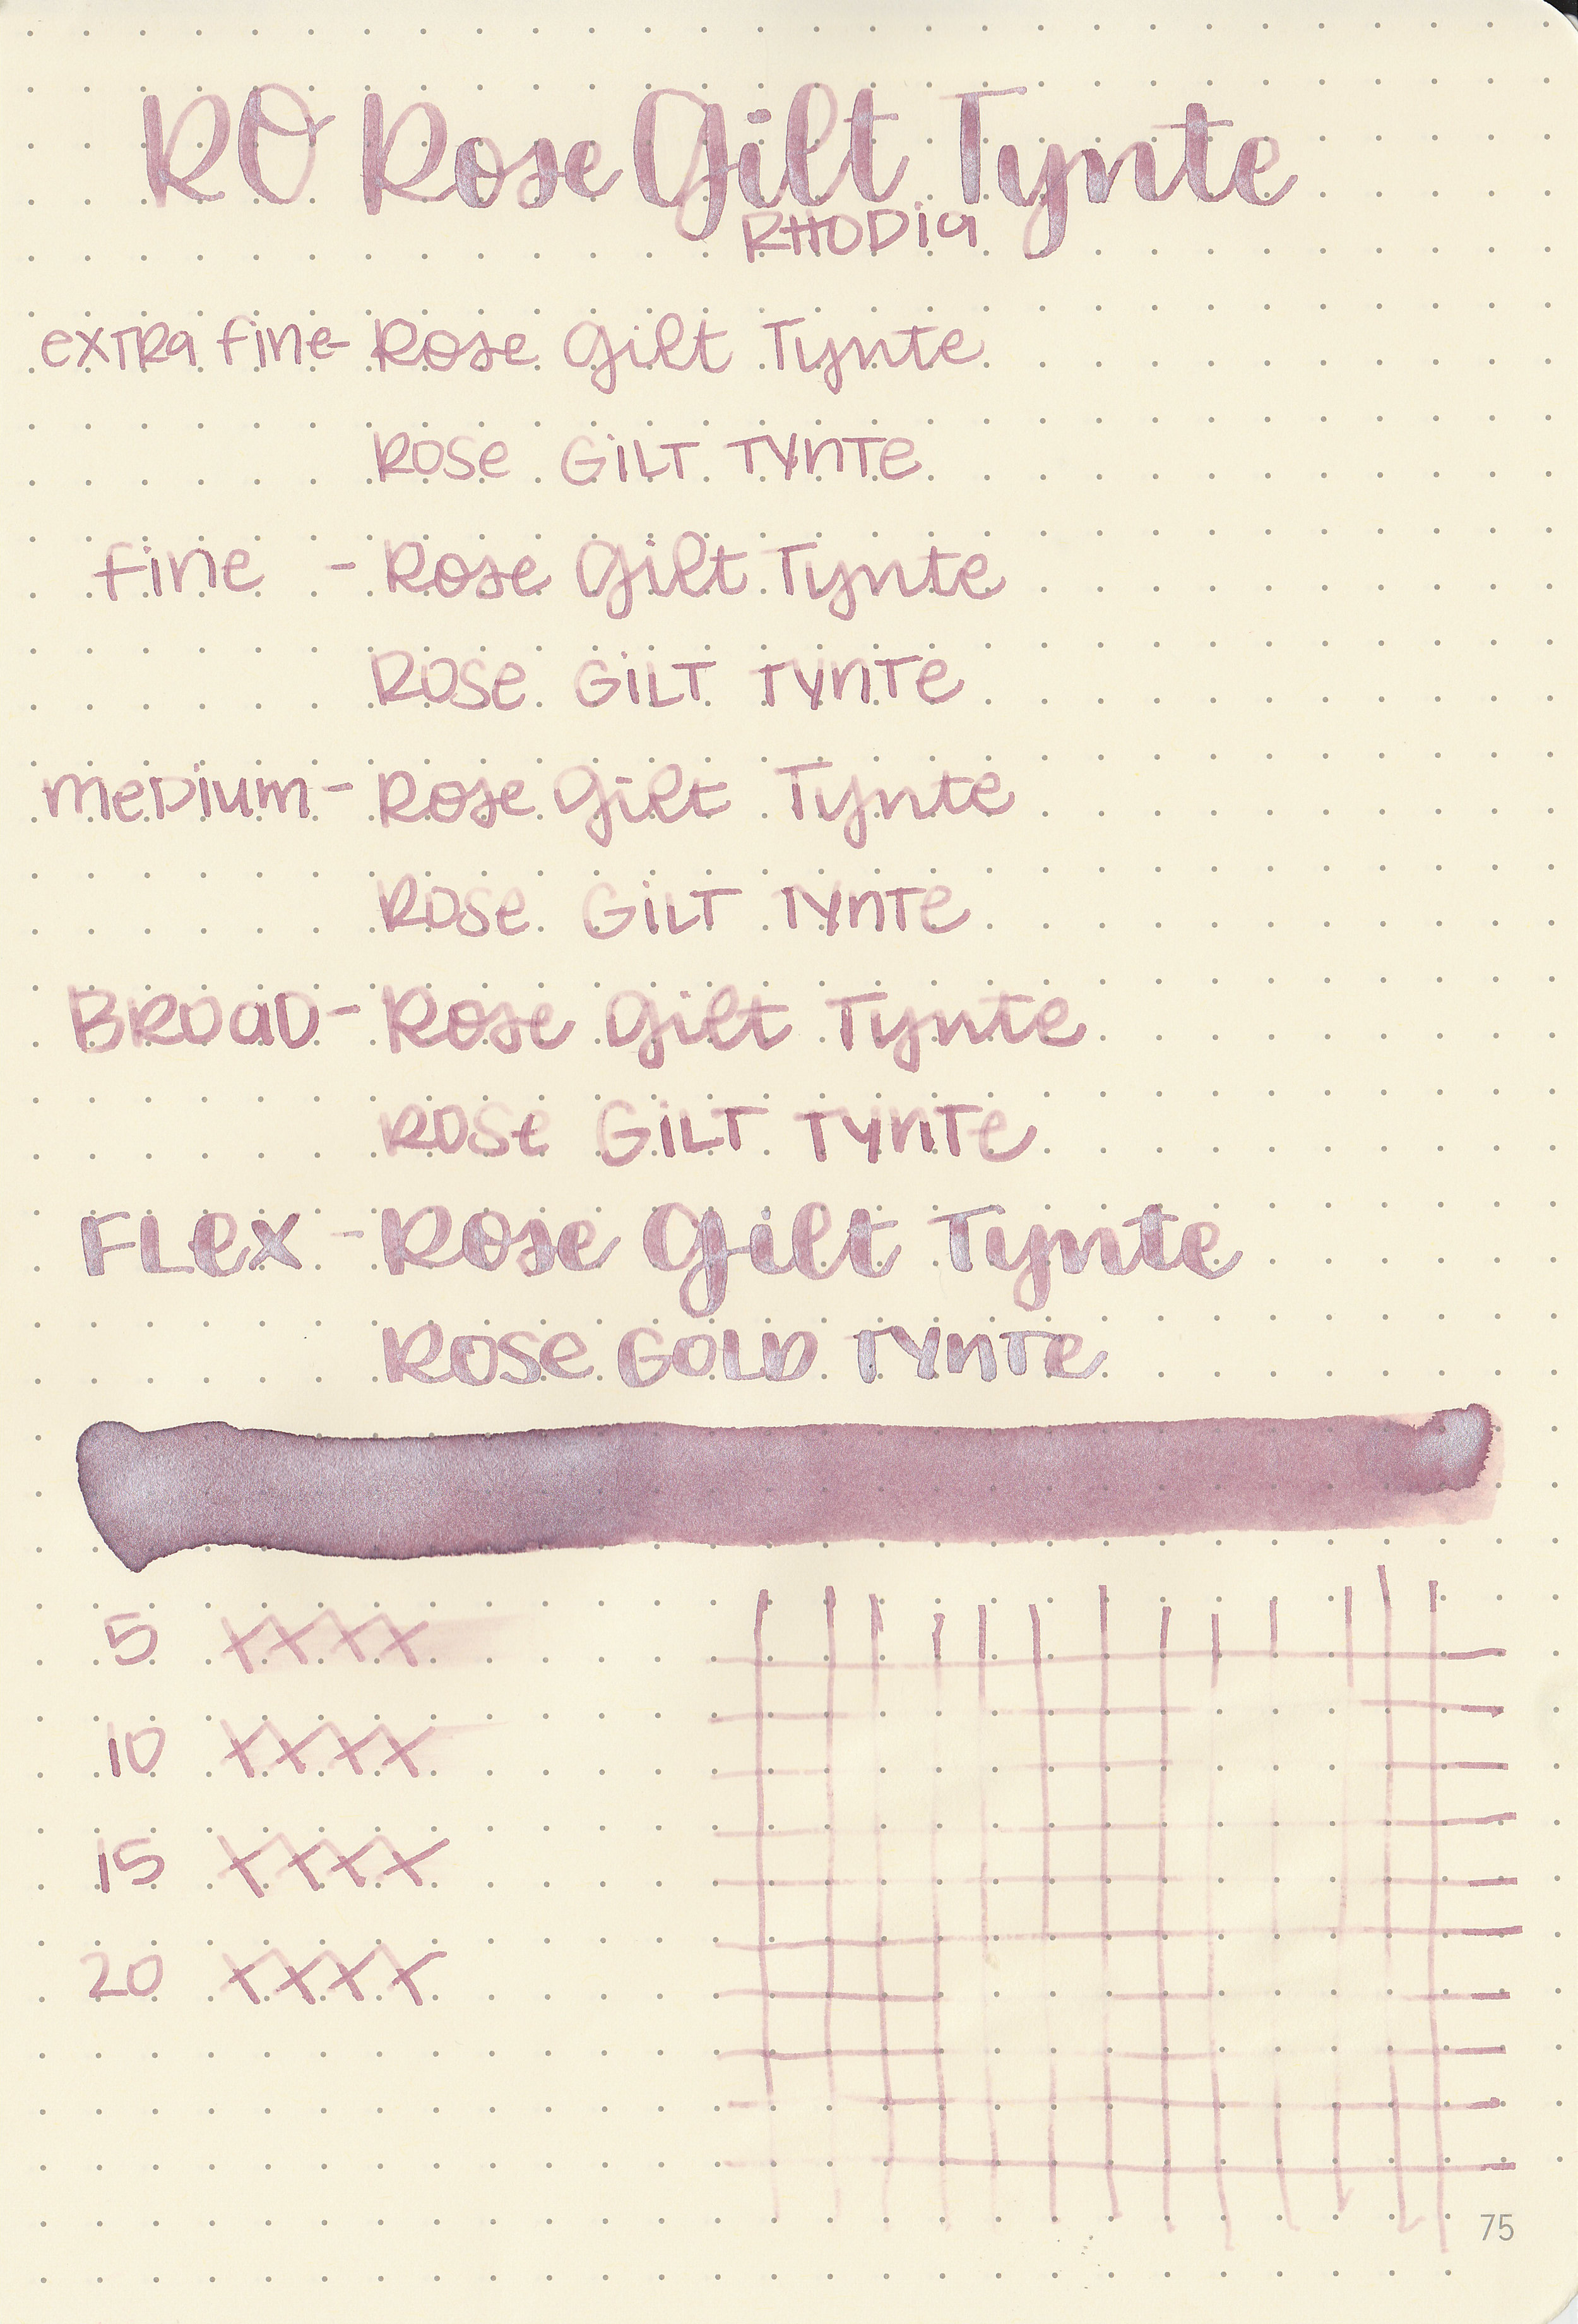 RO Rose Gilt Tynte
RHODia
exTRa fine- Rose Gilt Tynte
ROSe GiLT TYnTe
fine - Rose Gilt Tynte
ROSe GiLT TYnTe
meDium- Rose Gilt Tynte
ROSe GiLT TYnTe
BROaD- Rose Gilt Tynte
ROSe GiLT TYnTe
FLex - Rose Gilt Tynte
ROSe GOLD TYnTe
5 XXXX
10 XXXX
15 XXXX
20 XXXX
75